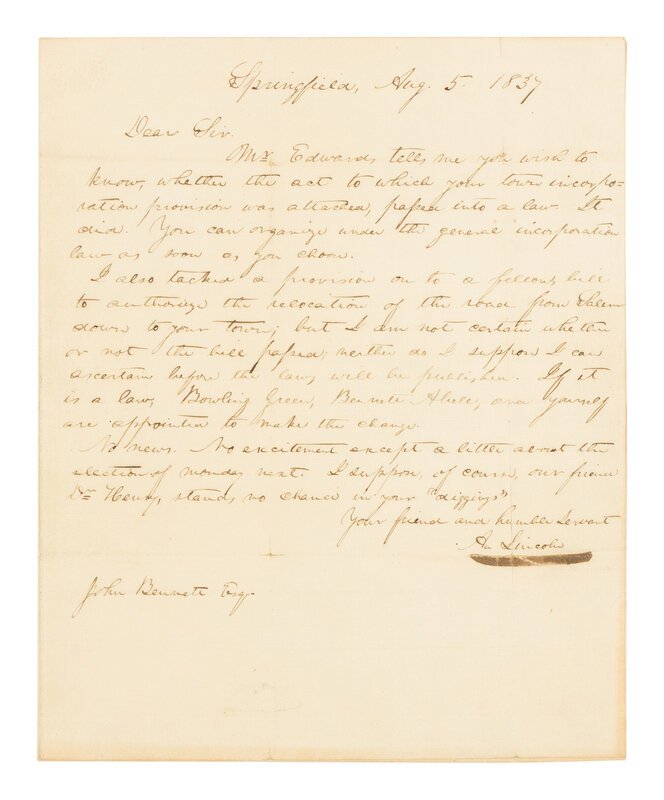 Springfield, Aug. 5. 1837
Dear Sir.
Mr. Edwards tells me you wish to
know, whether the act to which your town incorpo-
ration provision was attached, passed into a law. It
did. You can organize under the general incorporation
law as soon as you choose.
I also tacked a provision on to a fellow's bill
to authorize the relocation of the road from Salem
down to your town; but I am not certain whether
or not the bill passed, neither do I suppose I can
ascertain before the laws will be published. If it
is a law, Bowling Green, Bennett Abell, and yourself
are appointed to make the change.
No news. No excitement except a little about the
election of monday next. I suppose, of course, our friend
Dr. Henry, stands no chance in your "diggings"
Your friend and humble servant
A. Lincoln
John Bennett Esq.